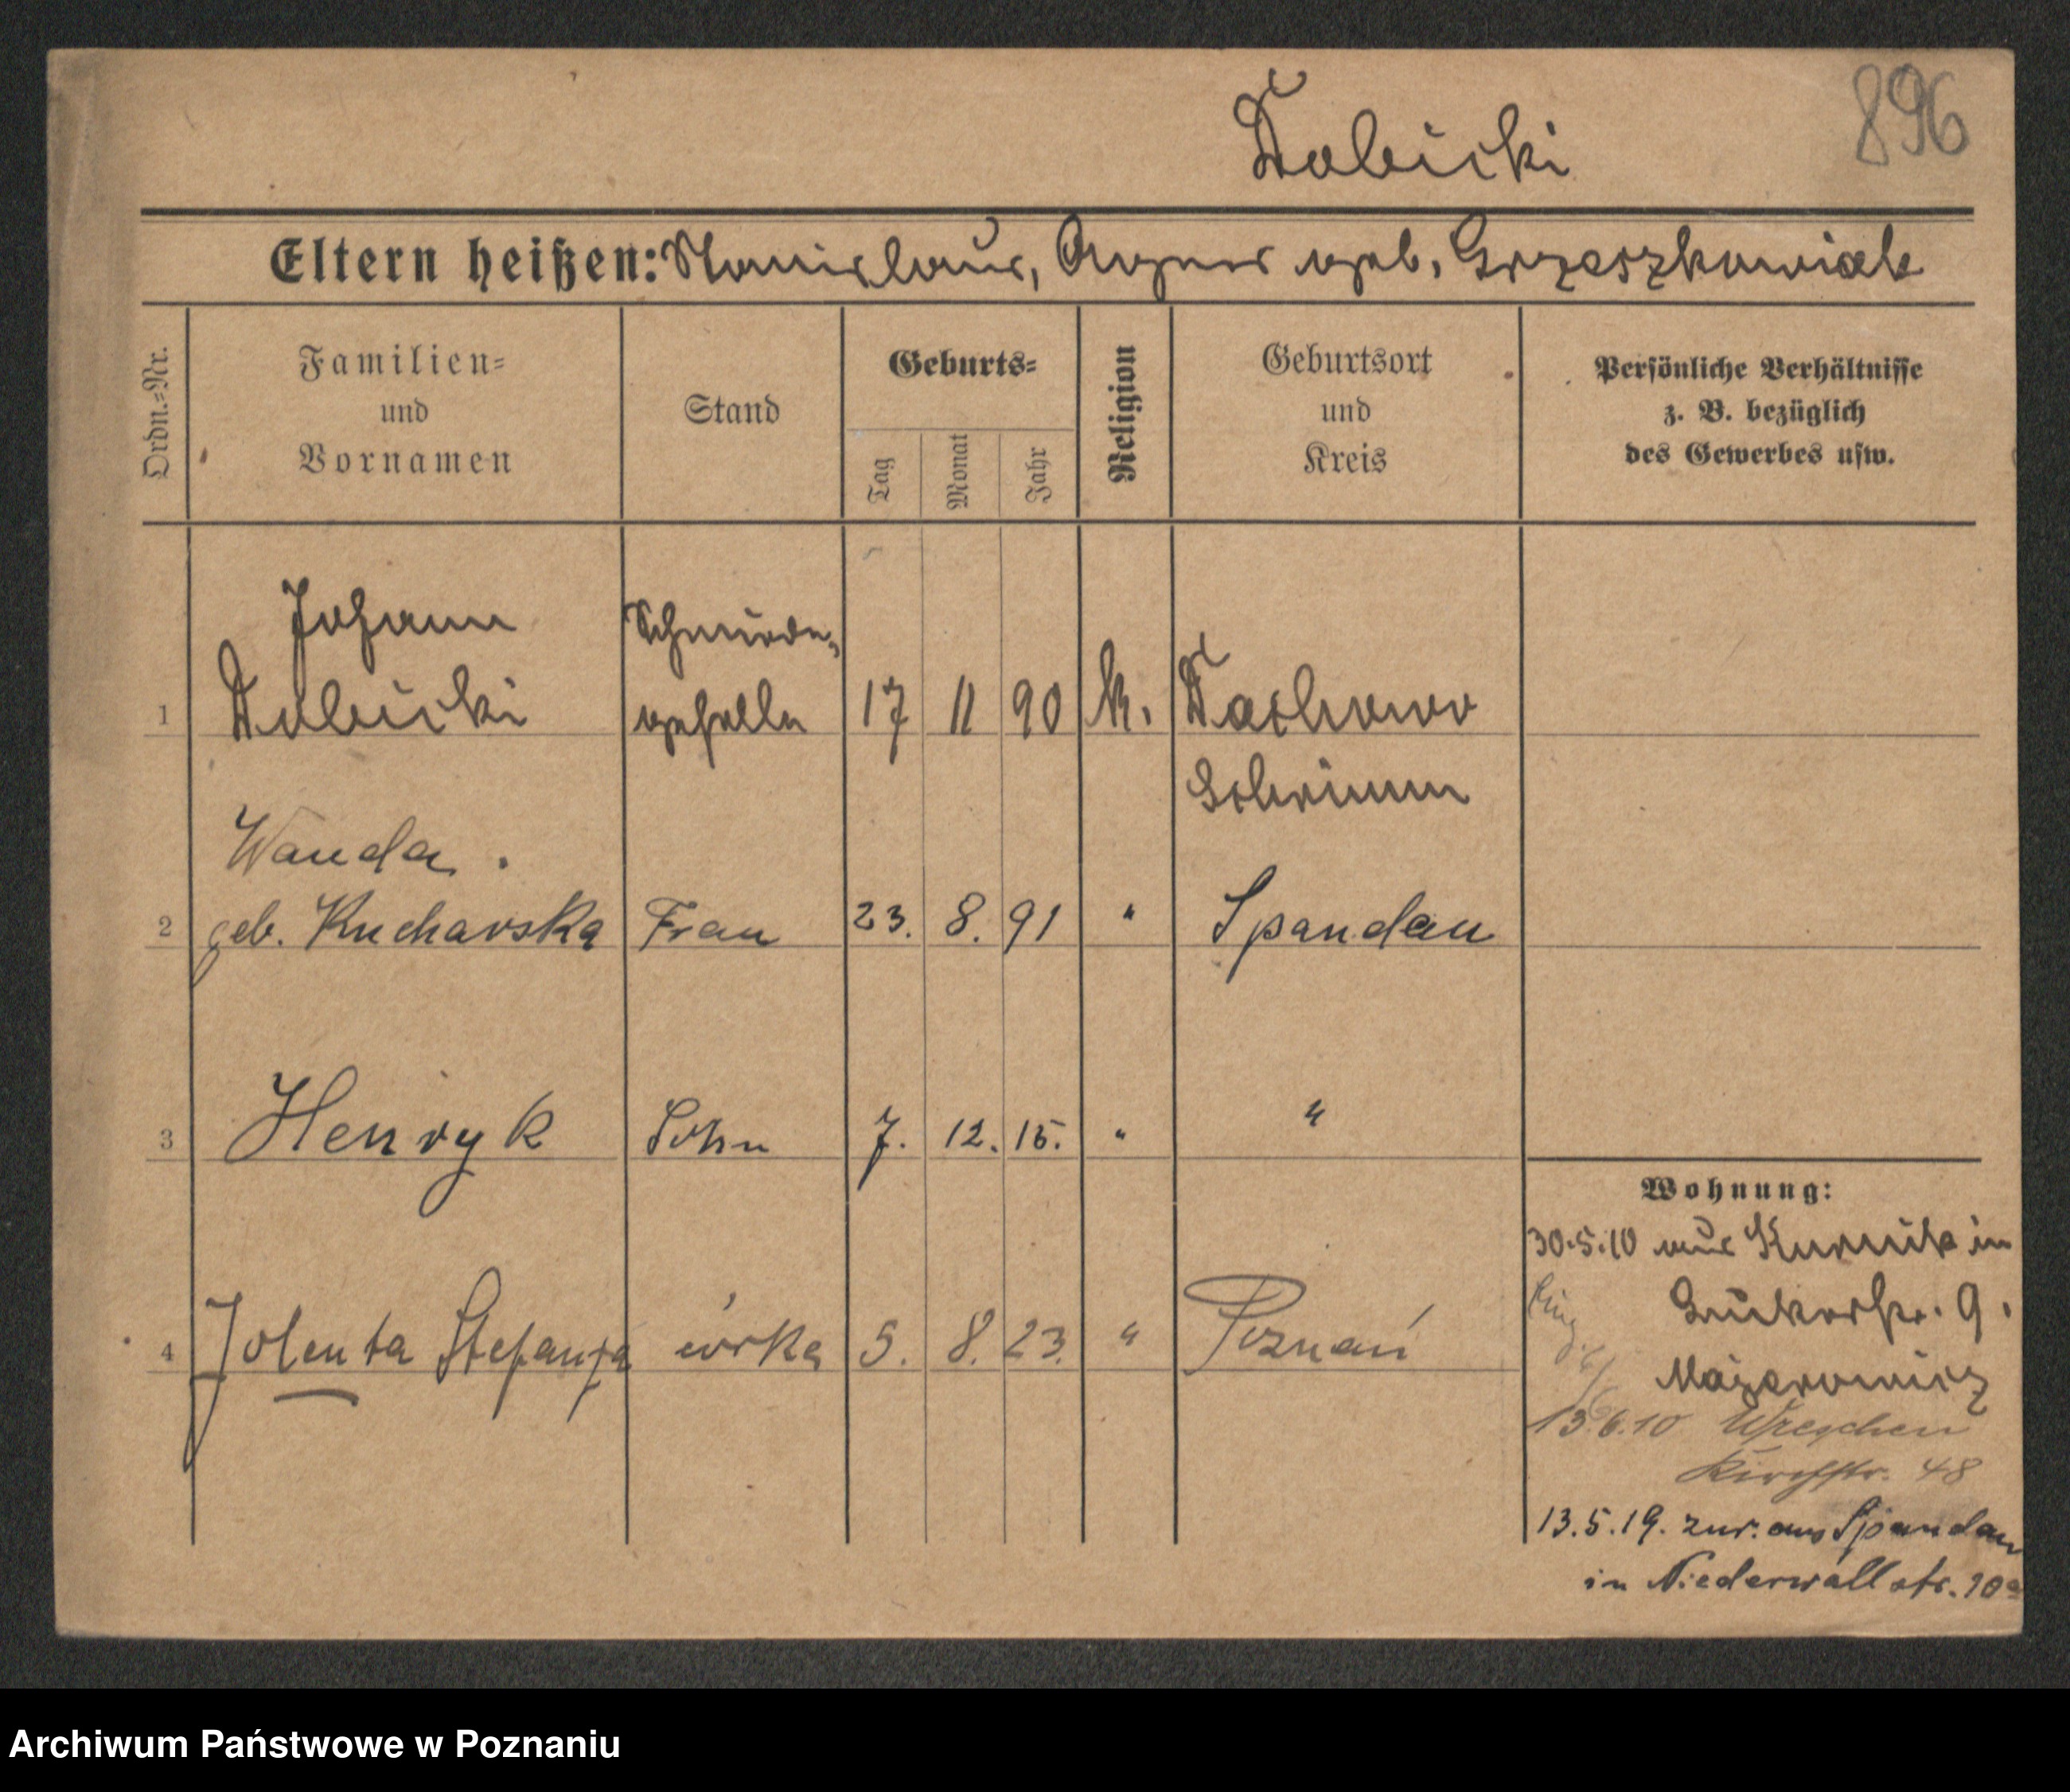 Dabicki
896
Eltern heißen: Stanislaus, Agnes geb. Grzeszkowiak
Ordn.-Nr.
Familien-
und
Vornamen
Stand
Geburts-
Tag
Monat
Jahr
Religion
Geburtsort
und
Kreis
Persönliche Verhältnisse
z. B. bezüglich
des Gewerbes usw.
Johann
1 Dabicki
Schmiede-
geselle
17 11 90 k.
Schrimm
Wanda
2 geb. Kucharska Frau 23. 8. 91 " Spandau
3 Henryk Sohn 7. 12. 15. " "
4 Jolenta Stefanja córka 5. 8. 23. " Poznań
Wohnung:
30.5.10 aus Kurnik in
9.
13.6.10 Wreschen
Kirchstr. 48
13.5.19. zur. aus Spandau
in Niederwallstr. 10a
Archiwum Państwowe w Poznaniu